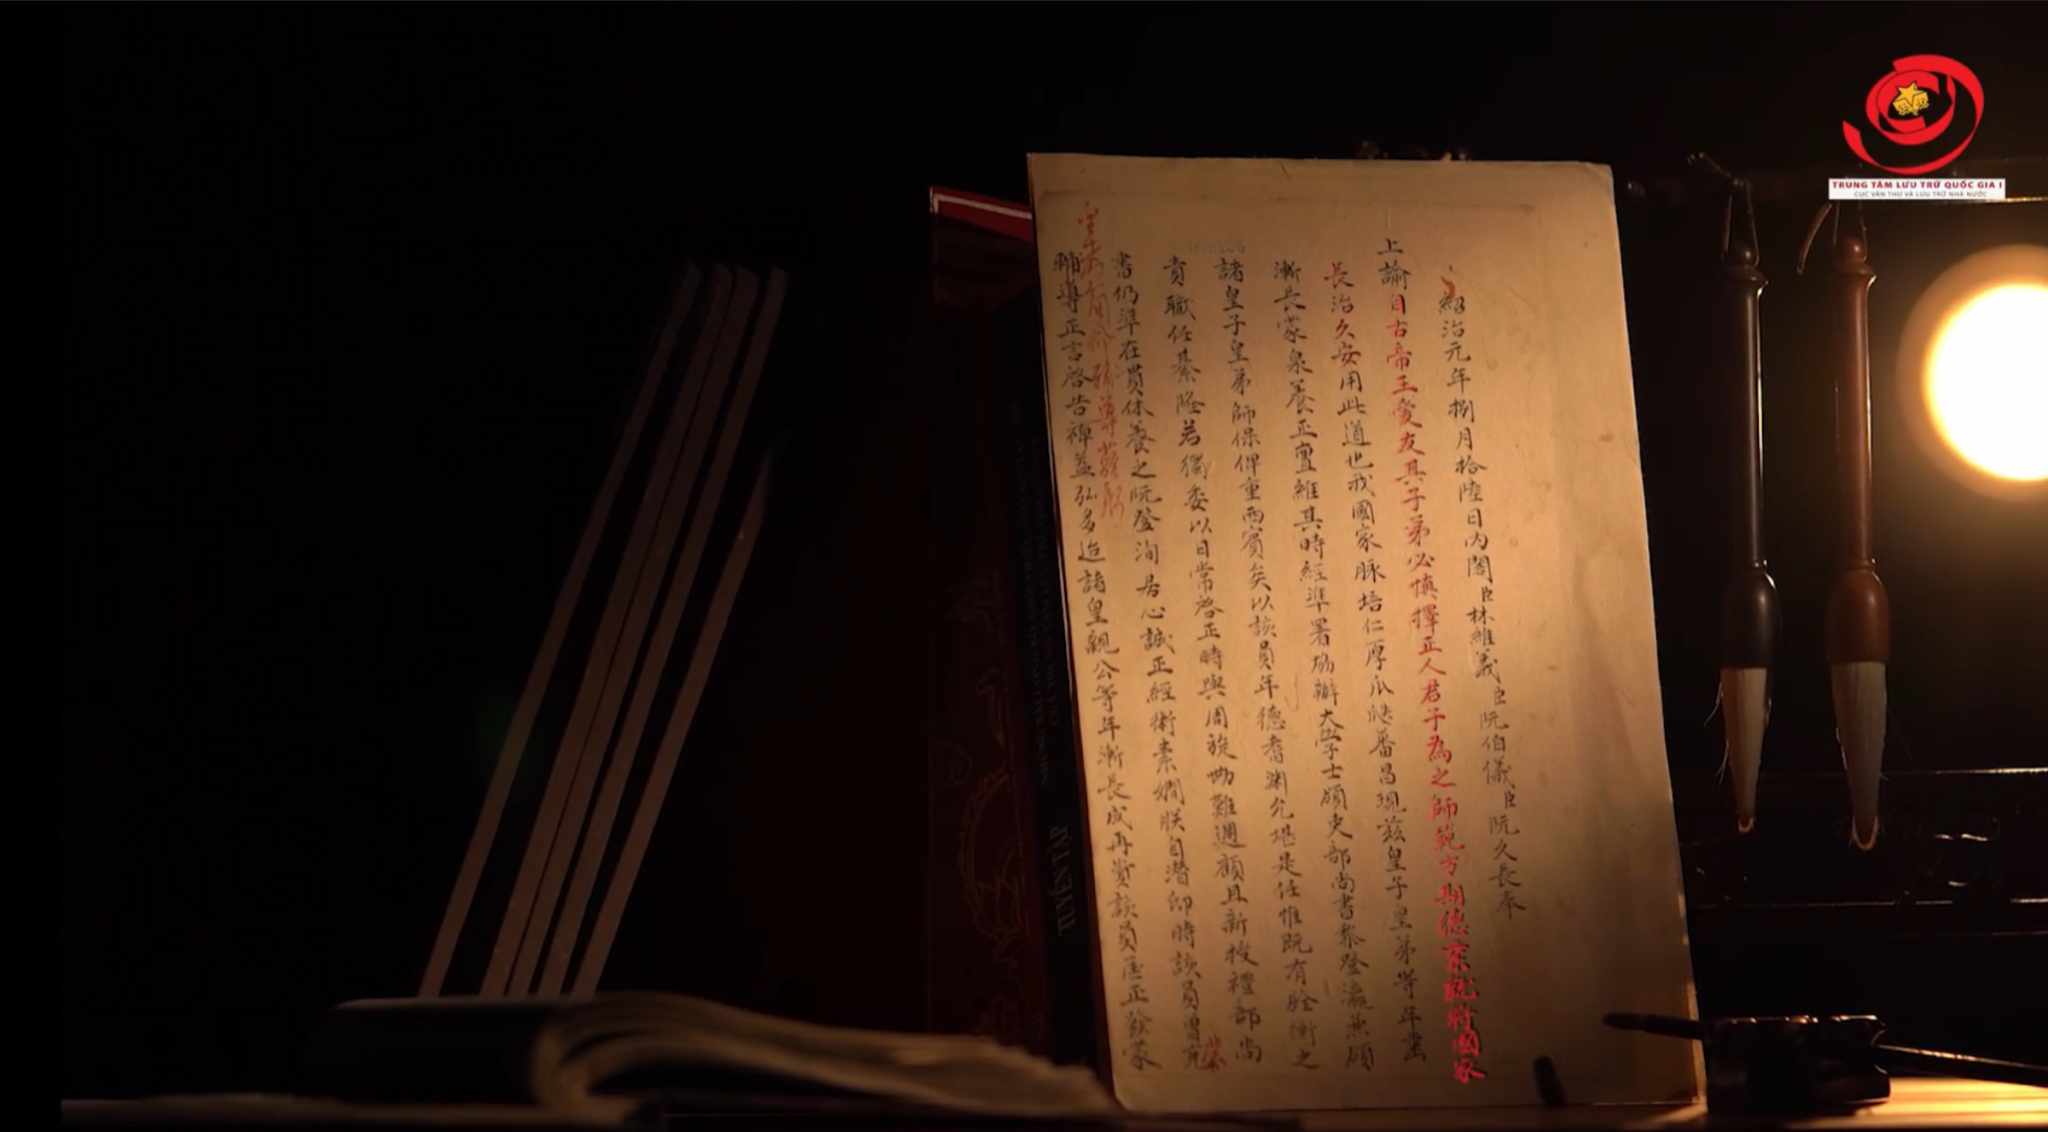 紹治元年捌月拾陸日内閣臣林維義臣阮伯儀臣阮久長奉
上諭自古帝王愛友其子弟必慎擇正人君子為之師範方期德業就將國家
長治久安用此道也我國家脉培仁厚瓜瓞蕃昌現茲皇子皇弟等年
漸長蒙泉養正亶維其時經準署協辦大學士領吏部尚書黎登瀛兼領
諸皇子皇弟師保俾重西賓矣以該員年德耆淵允堪是任惟既有銓衡之
責職任綦隆若獨委以日常啓正時與周旋恐難週顧且新授禮部尚
書仍準在貫休養之阮登洵居心誠正經術素嫻朕自潛邸時該員曾充
輔導正言啓告裨益弘多迨諸皇親公等年漸長成再賞該員匡正發蒙
TUYỂN TẬP
TRUNG TÂM LƯU TRỮ QUỐC GIA I
CỤC VĂN THƯ VÀ LƯU TRỮ NHÀ NƯỚC